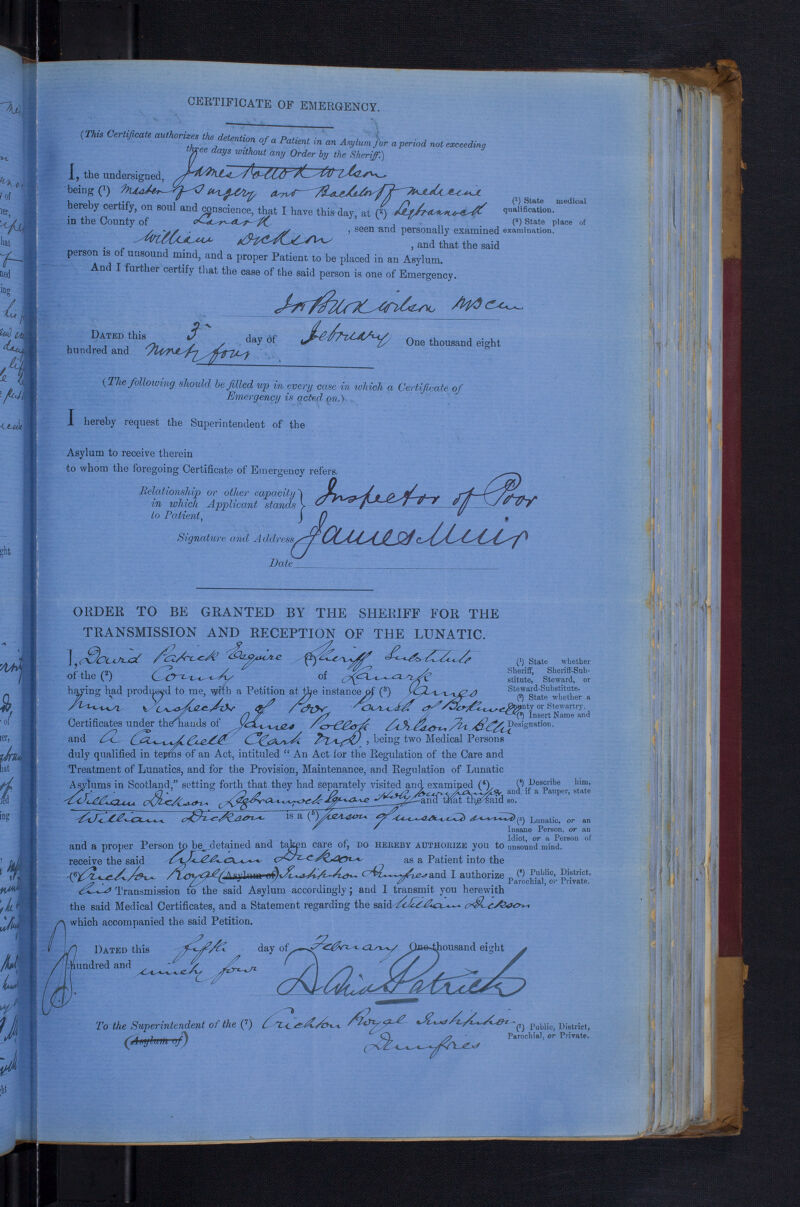 CERTIFICATE OF EMERGENCY.
(This Certificate authorizes the detention of a Patient in an Asylum for a period not exceeding
three days without any Order by the Sheriff.)
I, the undersigned, James Pollok Wilson
being (¹) Master of Surgery and Bachelor of medicine
hereby certify, on soul and conscience, that I have this day, at (²) Legbrannock
in the County of Lanark
William Dickson , seen and personally examined
, and that the said
person is of unsound mind, and a proper Patient to be placed in an Asylum.
And I further certify that the case of the said person is one of Emergency.
(¹) State medical
qualification.
(²) State place of
examination.
Jas Pollok Wilson MB CM
DATED this 3 day of February One thousand eight
hundred and Ninety four
(The following should be filled up in every case in which a Certificate of
Emergency is acted on.)
I hereby request the Superintendent of the
Asylum to receive therein
to whom the foregoing Certificate of Emergency refers.
Relationship or other capacity
in which Applicant stands
to Patient,
} Inspector of Poor
Signature and Address James Muir
Date
ORDER TO BE GRANTED BY THE SHERIFF FOR THE
TRANSMISSION AND RECEPTION OF THE LUNATIC.
I, David Patrick Esquire Sheriff Substitute
of the (²) County of Lanark
having had produced to me, with a Petition at the instance of (³) James
Muir Inspector of Poor, Parish of Bothwell
Certificates under the hands of James Pollok Wilson M.B.CM
and A Campbell Clark M.D., being two Medical Persons
duly qualified in terms of an Act, intituled “An Act for the Regulation of the Care and
Treatment of Lunatics, and for the Provision, Maintenance, and Regulation of Lunatic
Asylums in Scotland,” setting forth that they had separately visited and examined (⁴)
William Dickson Legbrannock Square Holytown pauper and that the said
William Dickson is a (⁵) person of unsound mind
and a proper Person to be detained and taken care of, DO HEREBY AUTHORIZE you to
receive the said William Dickson as a Patient into the
(⁶) Crichton Royal (Asylum of) Institution Dumfries and I authorize
his Transmission to the said Asylum accordingly; and I transmit you herewith
the said Medical Certificates, and a Statement regarding the said William Dickson
which accompanied the said Petition.
(¹) State whether
Sheriff, Sheriff-Sub-
stitute, Steward, or
Steward-Substitute.
(²) State whether a
County or Stewartry.
(³) Insert Name and
Designation.
(⁴) Describe him,
and if a Pauper, state
so.
(⁵) Lunatic, or an
Insane Person, or an
Idiot, or a Person of
unsound mind.
(⁶) Public, District,
Parochial, or Private.
DATED this fifth day of February One thousand eight
hundred and ninety four
David Patrick
To the Superintendent of the (⁷) Crichton Royal Institution
(Asylum of) Dumfries
(⁷) Public, District,
Parochial, or Private.